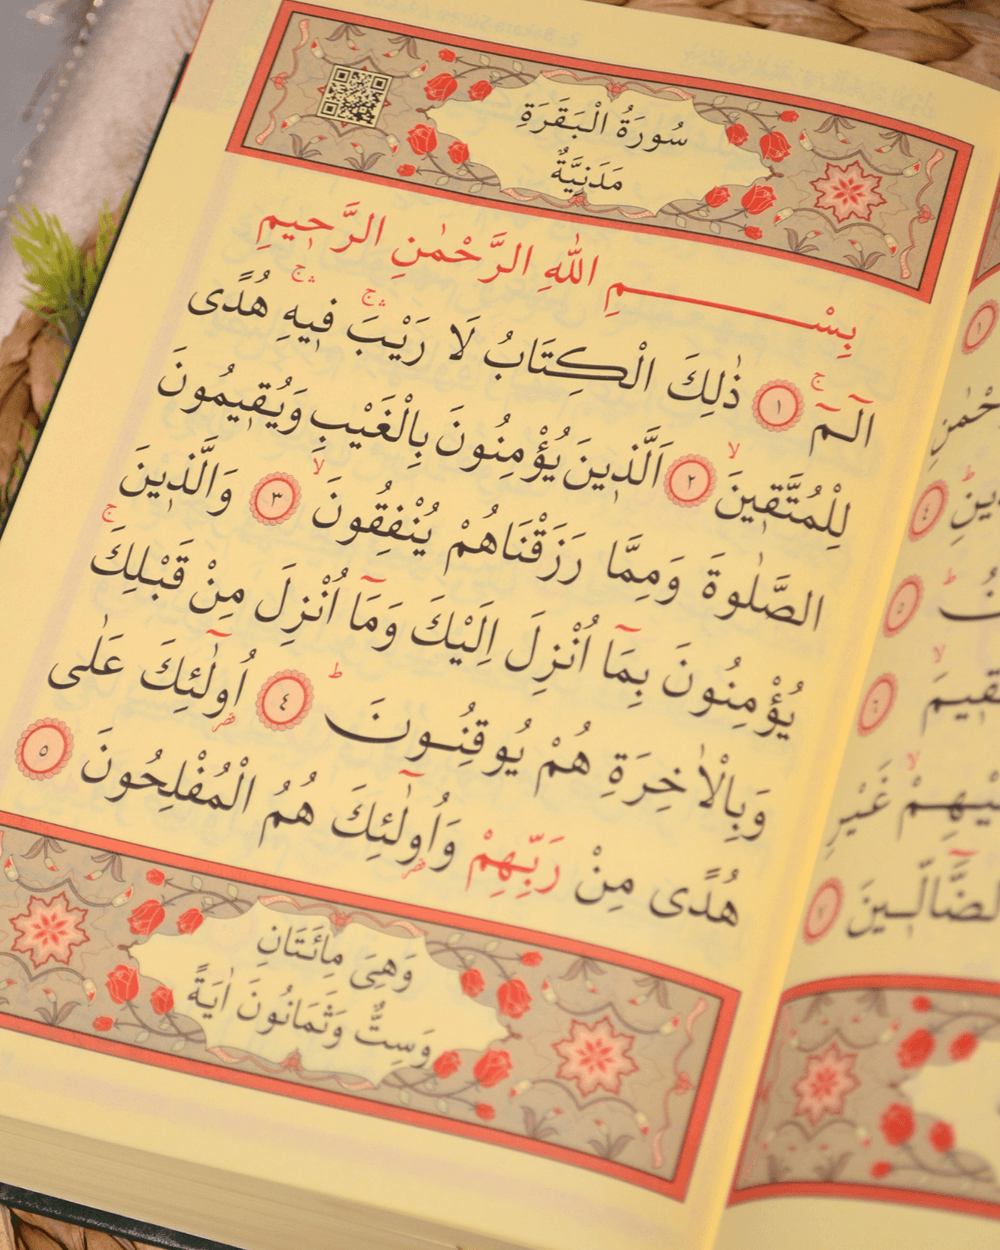 سُورَةُ الْبَقَرَةِ
مَدَنِيَّةٌ
بِسْمِ اللّٰهِ الرَّحْمٰنِ الرَّحٖيمِ
الٓمٓ ۚ ﴿١﴾ ذٰلِكَ الْكِتَابُ لَا رَيْبَ ۛۚ فٖيهِ ۛۚ هُدًى
لِلْمُتَّقٖينَ ۙ ﴿٢﴾ اَلَّذٖينَ يُؤْمِنُونَ بِالْغَيْبِ وَيُقٖيمُونَ
الصَّلٰوةَ وَمِمَّا رَزَقْنَاهُمْ يُنْفِقُونَ ۙ ﴿٣﴾ وَالَّذٖينَ
يُؤْمِنُونَ بِمَٓا اُنْزِلَ اِلَيْكَ وَمَٓا اُنْزِلَ مِنْ قَبْلِكَ ۚ
وَبِالْاٰخِرَةِ هُمْ يُوقِنُونَ ؕ ﴿٤﴾ اُو۬لٰٓئِكَ عَلٰى
هُدًى مِنْ رَبِّهِمْ وَاُو۬لٰٓئِكَ هُمُ الْمُفْلِحُونَ ﴿٥﴾
وَهِىَ مِائَتَانِ
وَسِتٌّ وَثَمَانُونَ اٰيَةً